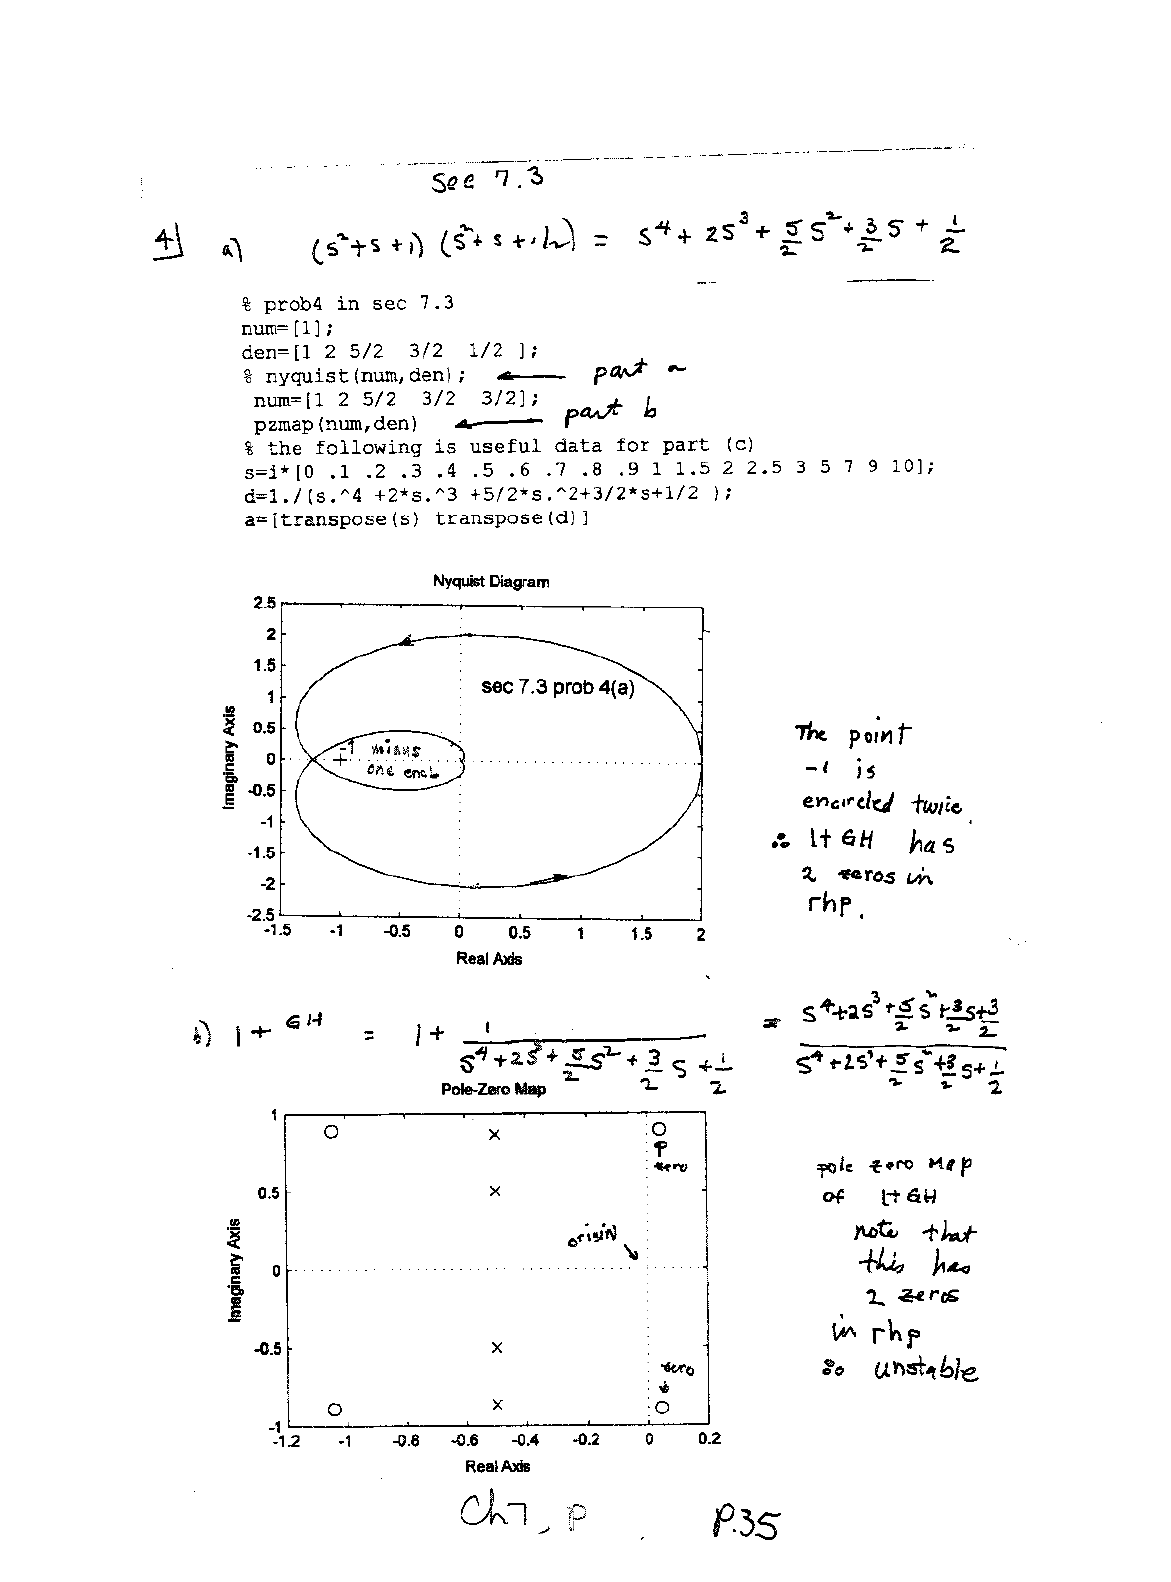 Sec 7.3
4] a) (s²+s+1) (s²+s+1/2) = s⁴ + 2s³ + 5/2 s² + 3/2 s + 1/2
% prob4 in sec 7.3
num=[1];
den=[1 2 5/2 3/2 1/2 ];
% nyquist(num,den); ← part a
num=[1 2 5/2 3/2 3/2];
pzmap(num,den) ← part b
% the following is useful data for part (c)
s=i*[0 .1 .2 .3 .4 .5 .6 .7 .8 .9 1 1.5 2 2.5 3 5 7 9 10];
d=1./(s.^4 +2*s.^3 +5/2*s.^2+3/2*s+1/2 );
a=[transpose(s) transpose(d)]
Nyquist Diagram
2.5
2
1.5
1
0.5
0
-0.5
-1
-1.5
-2
-2.5
Imaginary Axis
sec 7.3 prob 4(a)
-1 minus
one encl
-1.5 -1 -0.5 0 0.5 1 1.5 2
Real Axis
The point
-1 is
encircled twice.
∴ 1+GH has
2 zeros in
rhp.
b) 1 + GH = 1 + 1/(s⁴+2s³+5/2 s²+3/2 s+1/2) = (s⁴+2s³+5/2 s²+3/2 s+3/2)/(s⁴+2s³+5/2 s²+3/2 s+1/2)
Pole-Zero Map
1
0.5
0
-0.5
-1
Imaginary Axis
zero
origin
zero
-1.2 -1 -0.8 -0.6 -0.4 -0.2 0 0.2
Real Axis
pole zero map
of 1+GH
note that
this has
2 zeros
in rhp
so unstable
Ch7, P P.35